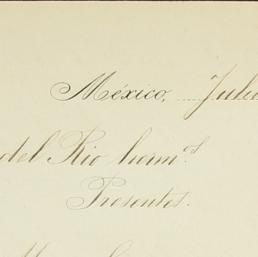 México, Julio
del Rio herm.os
Presentes.